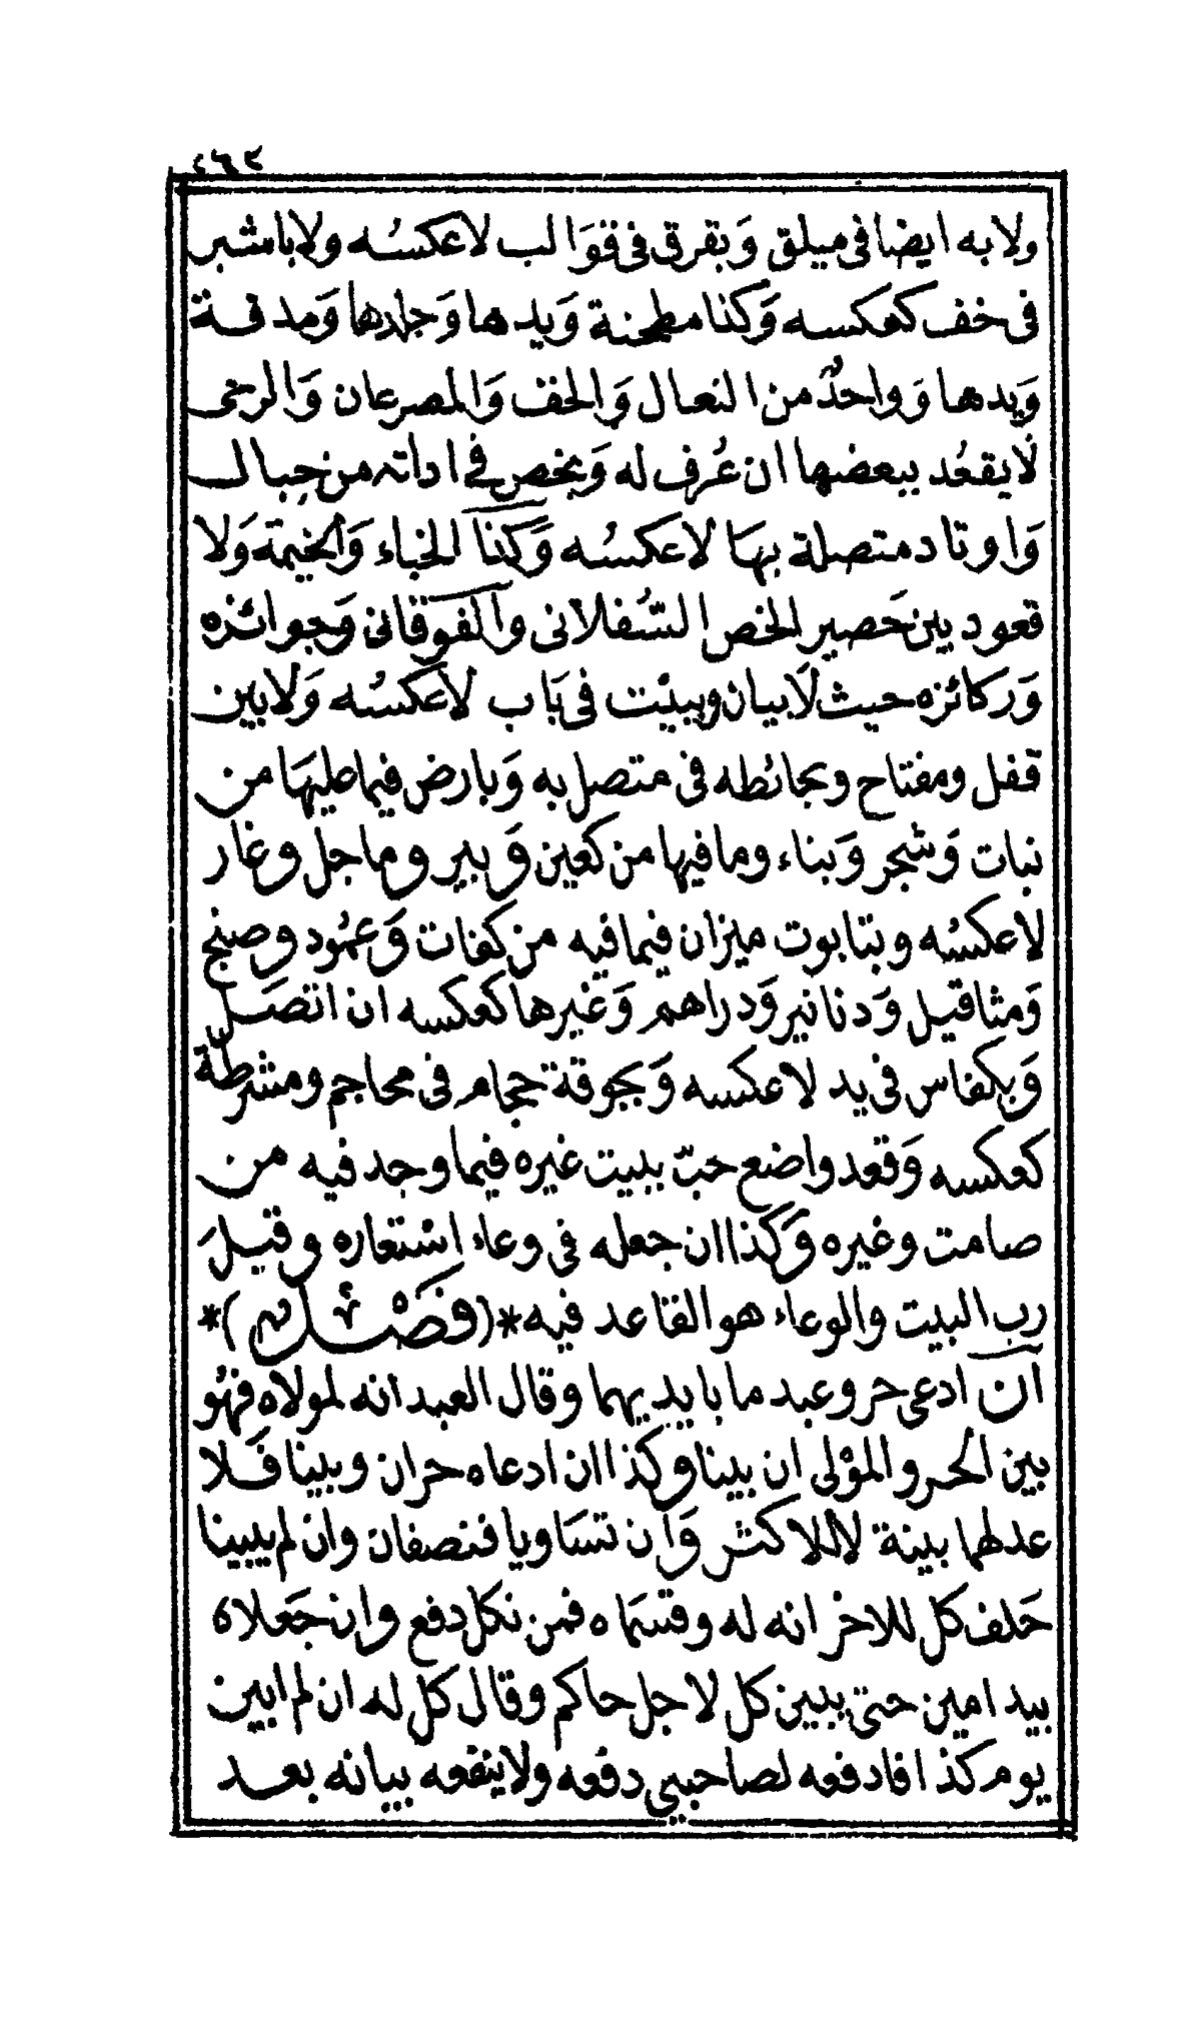 ٤٦٢
ولا به ايضا في ميلق وَبقرق في قوَالب لاعكسُه ولا باشبر
في خف كعكسه وَكذا مطحنة وَيدها وَجلدها وَمدقة
وَيدها وَواحدٌ من النعال وَالخف وَالمصرعان وَالرحى
لا يقعُد ببعضها ان عُرف له وَبخص في اداته من حِبال
وَاوتاد متصلة بهَا لاعكسُه وَكذا الخباء وَالخيمة وَلا
قعود بين حَصير الخص السُفلاني وَالفوقاني وَجوائزه
وَركائزه حيث لَا بيان وبيئت في بَاب لاعكسُه وَلا بين
قفل ومفتاح وبحائطه في متصل به وَبارض فيما عليهَا من
نبات وَشجر وَبناء وما فيها من كعين وَبير وماجل وغار
لاعكسُه وبتابوت ميزان فيما فيه من كفات وَعمُود وصنج
وَمثاقيل وَدنانير وَدراهم وَغيرها كعكسه ان اتصَل
وَبكفاس في يد لاعكسه وَبجوقة حجام في محاجم ومشرطة
كعكسه وَقعد واضع حبّ ببيت غيره فيما وجد فيه من
صامت وغيره وَكذا ان جعله في وعاء اسْتعاره وقيلَ
رب البيت والوعاء هو القاعد فيه *(فصْل)*
ان ادعى حر وعبد ما بايديهما وقال العبد انه لمولاه فهُو
بين الحر والموْلى ان بينا وكذا ان ادعاه حران وبينا فَلا
عدلهما بينة لا للاكثر وَان تسَاويا فنصفان وان لم يبينا
حَلف كل للاخر انه له وقسَماه فمن نكل دفع وان جَعلاه
بيد امين حتى يبين كل لاجل حاكم وقال كل له ان لم ابين
يوم كذا فادفعه لصاحبي دفعه ولا ينفعه بيانه بعد